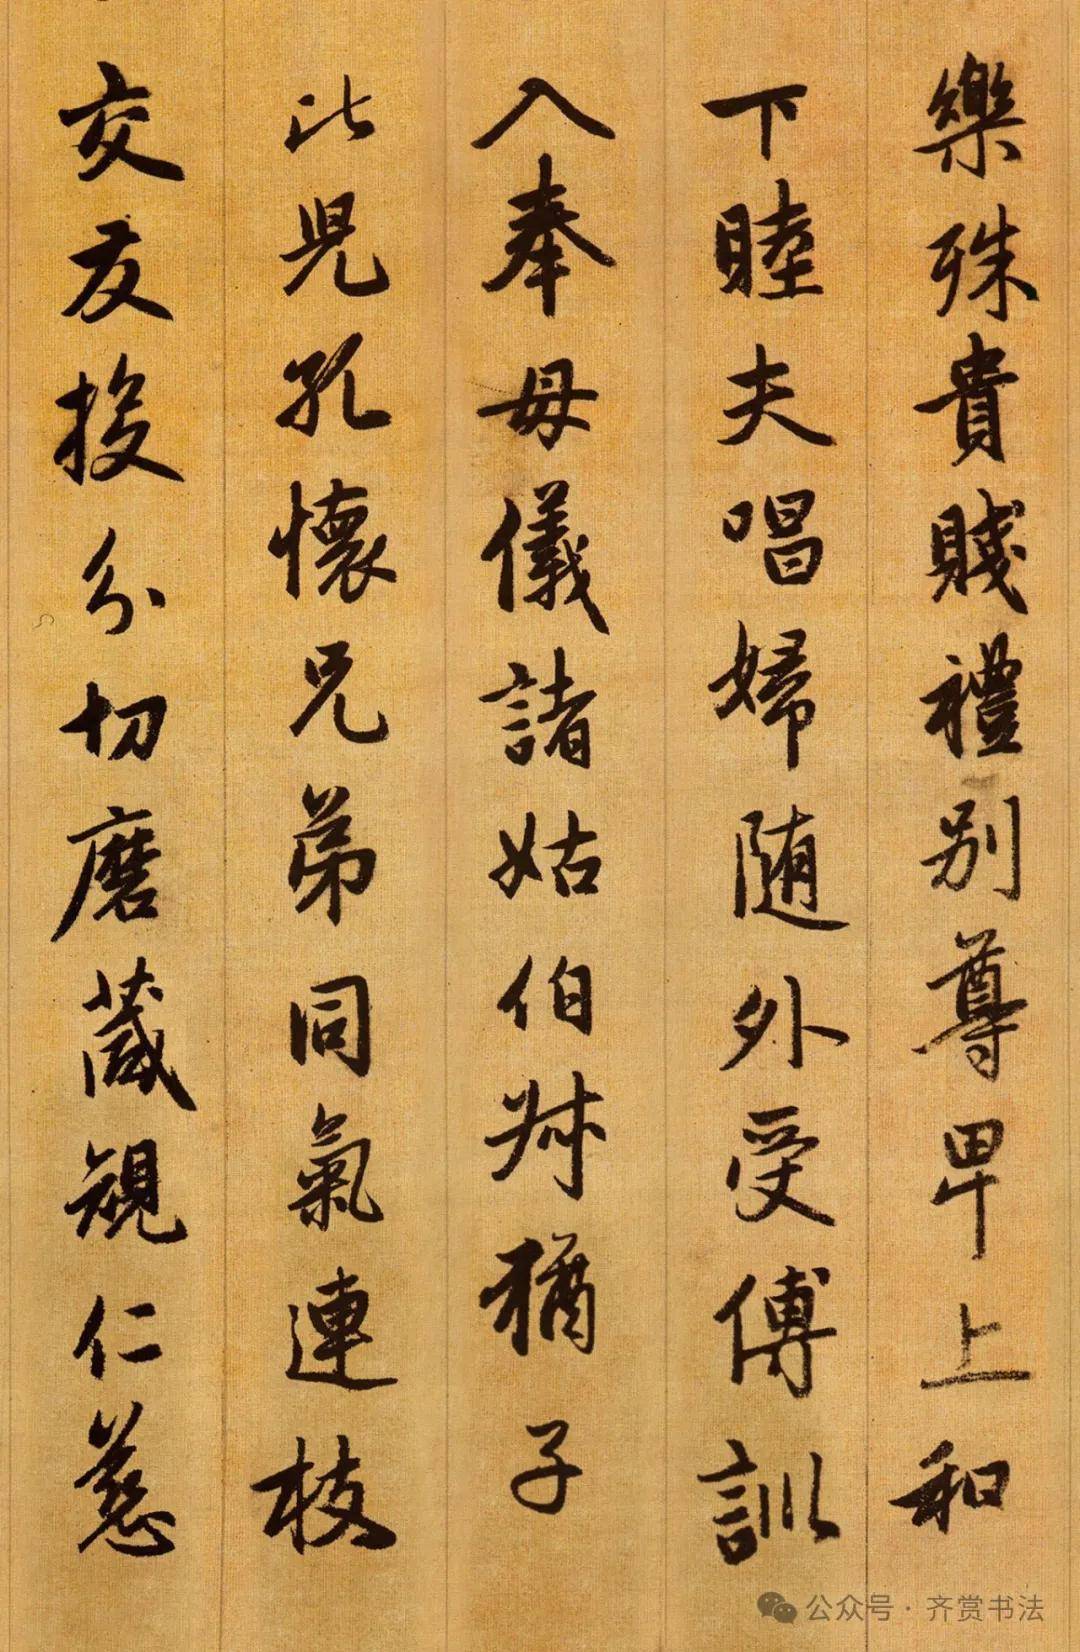 樂殊貴賤禮別尊卑上和
下睦夫唱婦随外受傅訓
入奉母儀諸姑伯叔猶子
比兒孔懷兄弟同氣連枝
交友投分切磨箴規仁慈
公众号·齐赏书法